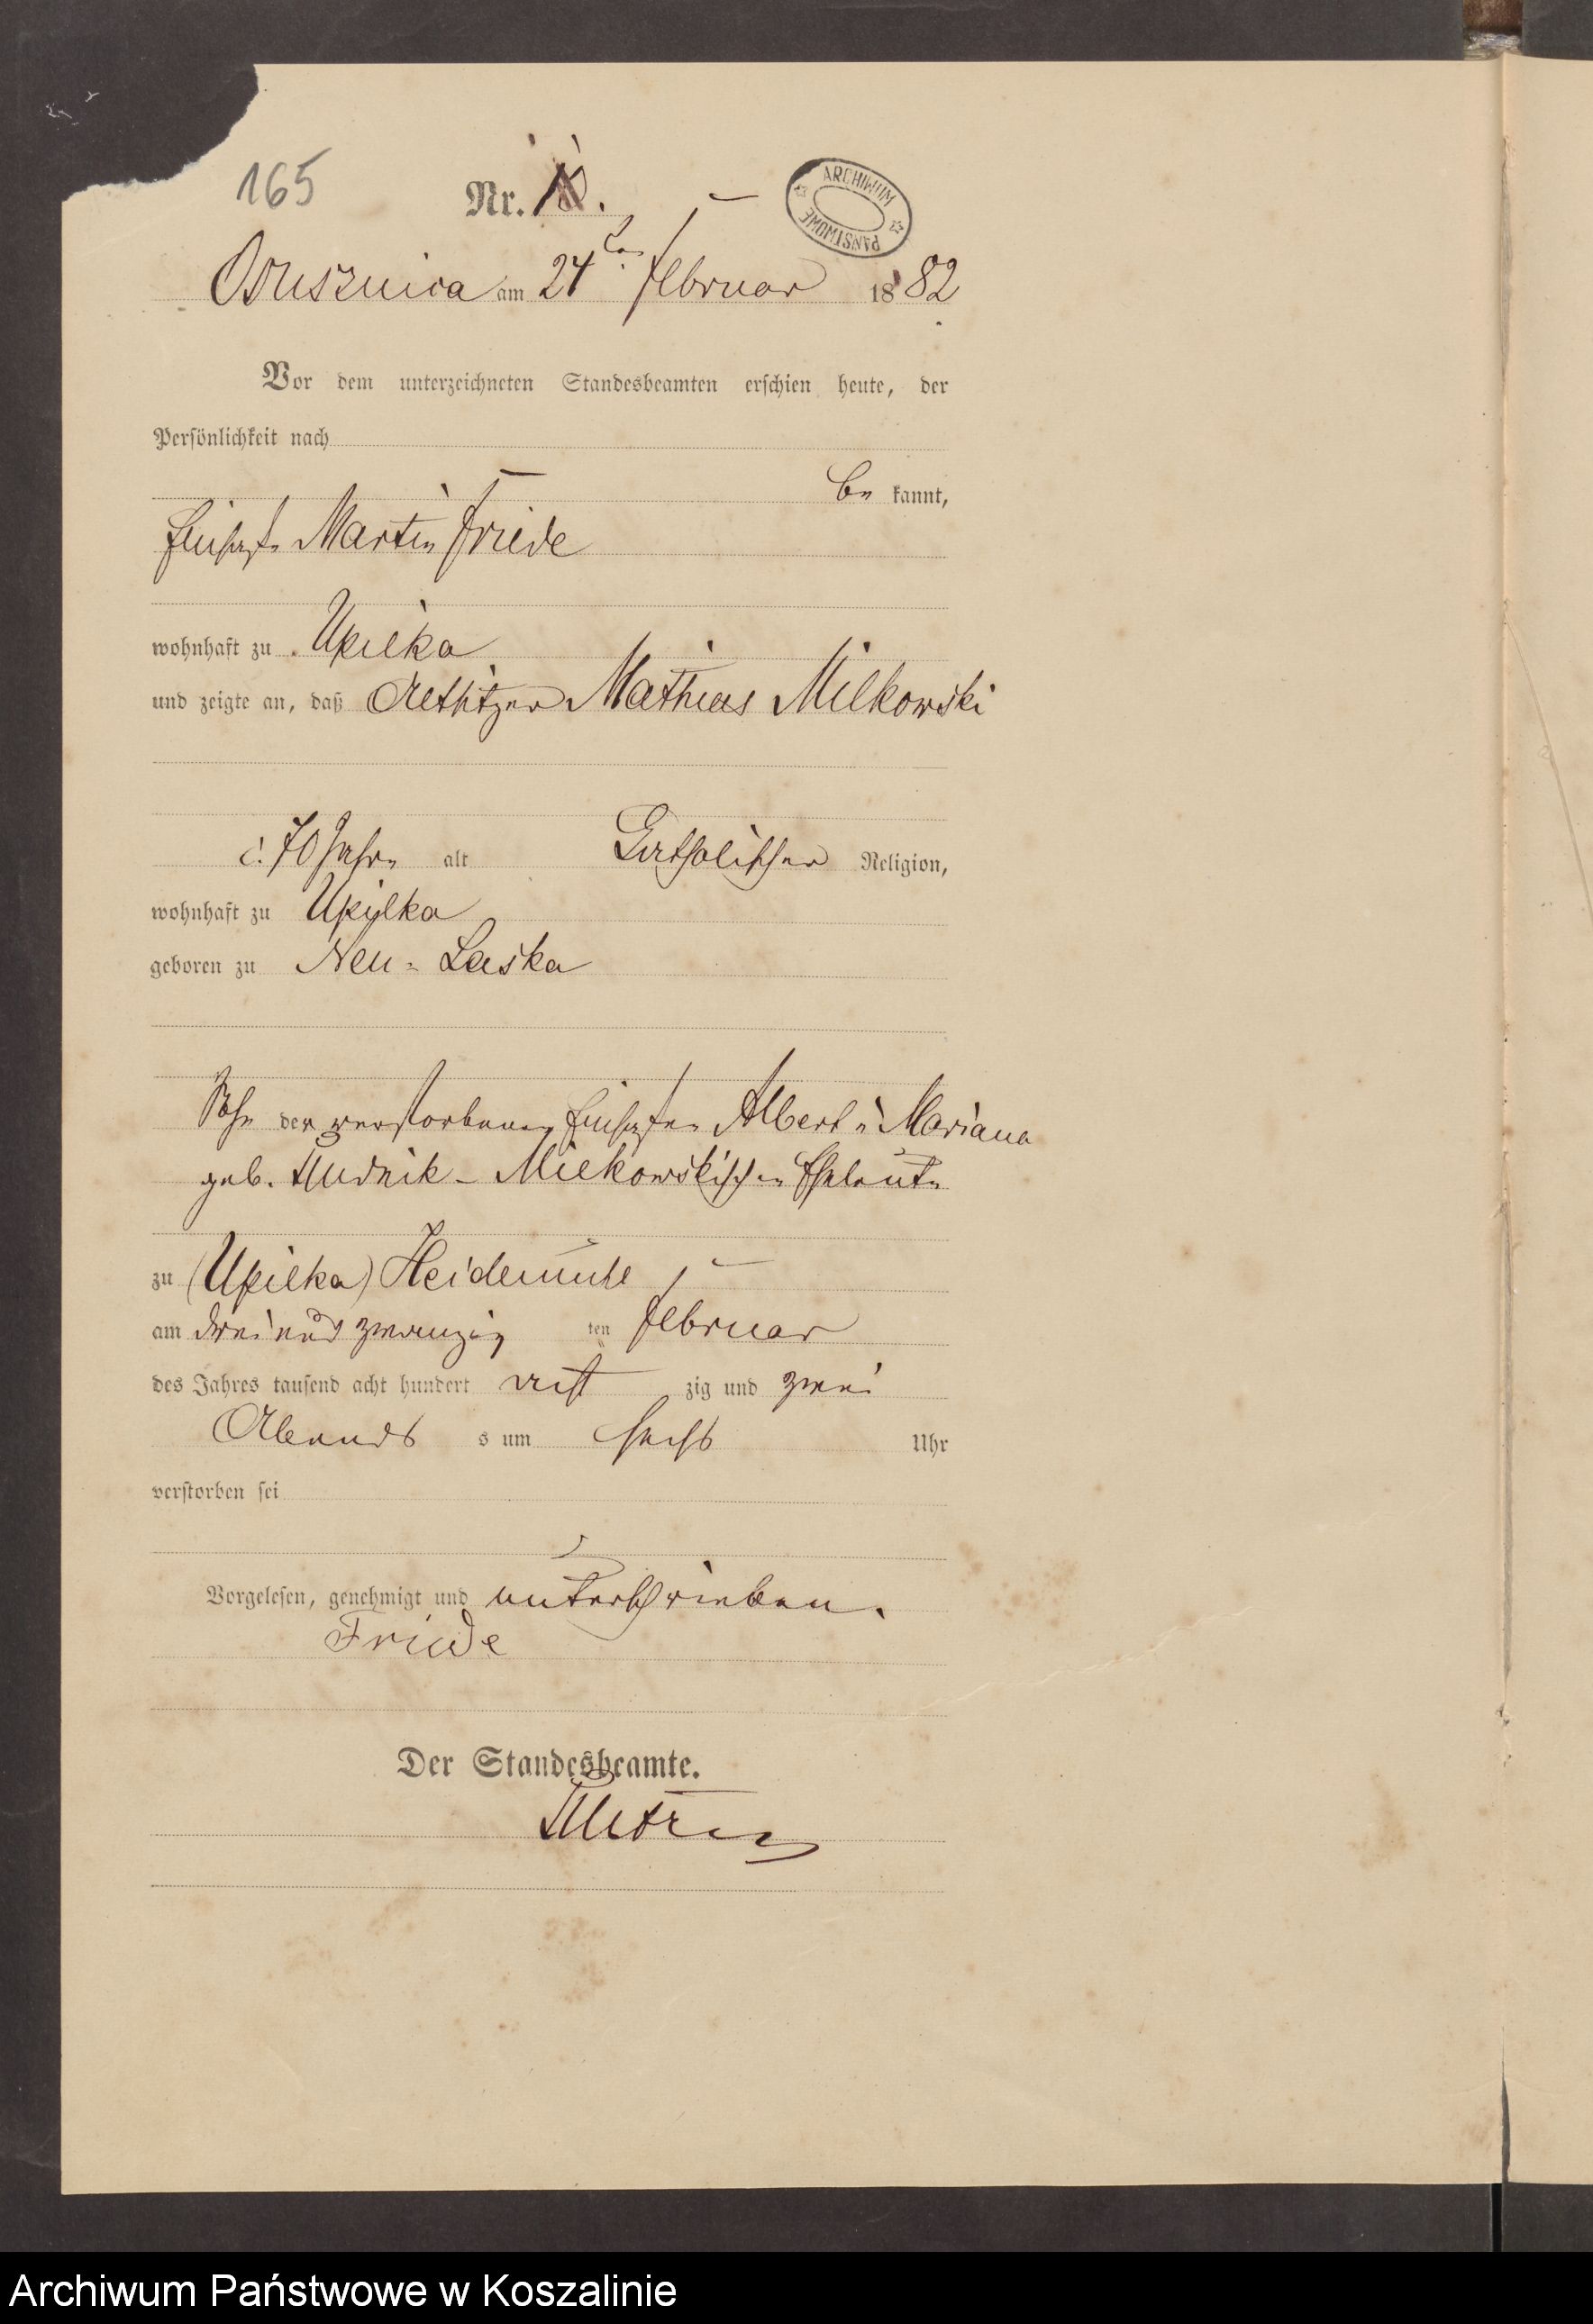 165
Nr.
ARCHIWUM PAŃSTWOWE
Osusznica am 24ten Februar 1882
Vor dem unterzeichneten Standesbeamten erschien heute, der
Persönlichkeit nach
be kannt,
Martin Friede
wohnhaft zu Upilka
und zeigte an, daß Altsitzer Mathias Milkowski
c. 70 Jahre alt Catholischer Religion,
wohnhaft zu Upilka
geboren zu Neu-Laska
Sohn der verstorbenen Albert u Mariana
geb. Rudnik-Milkowskischen Eheleute
zu (Upilka) Heidemühl
am drei und zwanzig ten Februar
des Jahres tausend acht hundert acht zig und zwei
Abends s um sechs Uhr
verstorben sei
Vorgelesen, genehmigt und unterschrieben.
Friede
Der Standesbeamte.
Archiwum Państwowe w Koszalinie